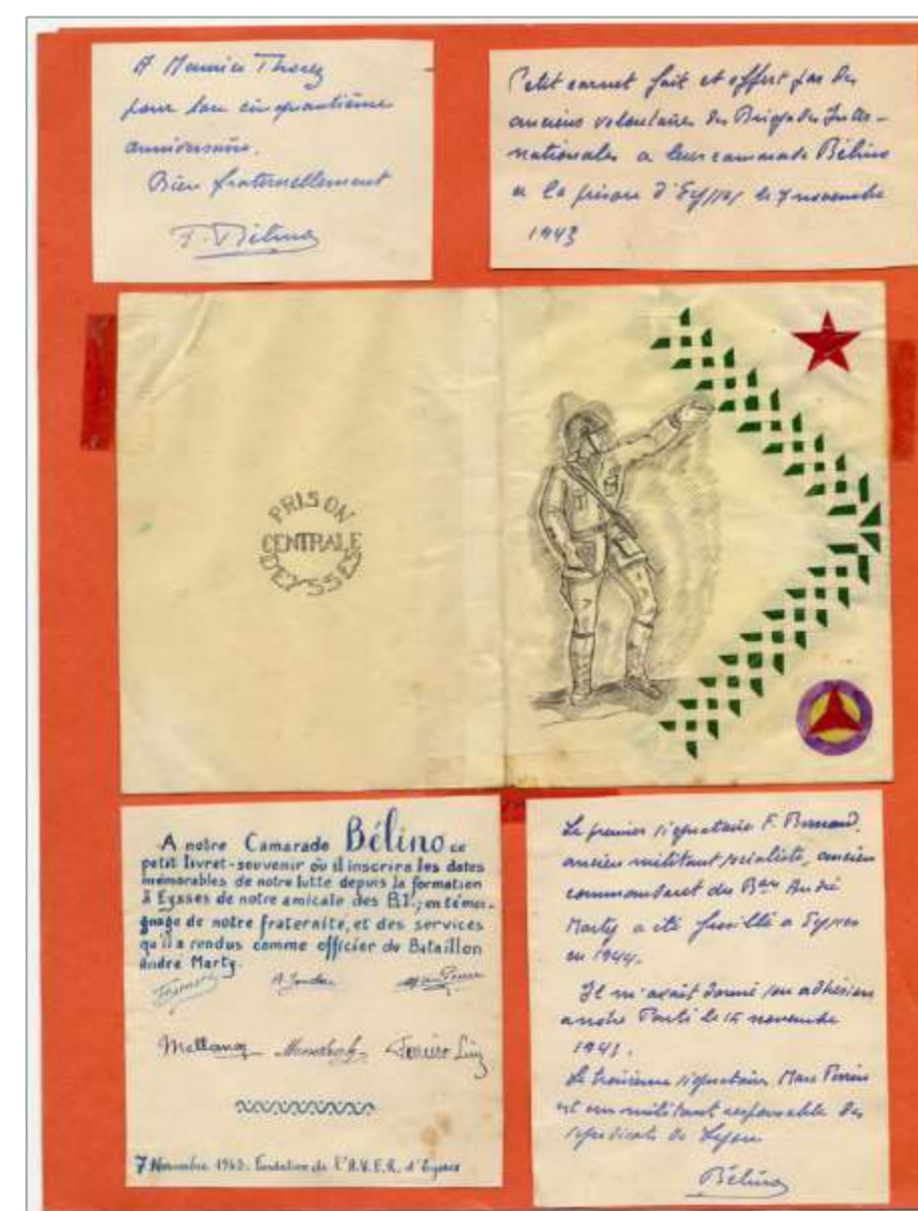 A Maurice Thorez
pour son cinquantième
anniversaire.
Bien fraternellement
F. Bélino
Petit carnet fait et offert par des
anciens volontaires des Brigades Inter-
nationales a leur camarade Bélino
a la prison d'Eysses le 7 novembre
1943
PRISON
CENTRALE
D'EYSSES
A notre Camarade Bélino ce
petit livret-souvenir où il inscrira les dates
mémorables de notre lutte depuis la formation
à Eysses de notre amicale des B.I.; en témoi-
gnage de notre fraternité, et des services
qu'il a rendus comme officier du Bataillon
André Marty.
7 Novembre 1943. Fondation de l'A.V.E.R. d'Eysses
Le premier signataire F. Bernard,
ancien militant socialiste, ancien
commandant du Bon André
Marty a été fusillé a Eysses
en 1944.
Il m'avait donné son adhésion
a notre Parti le 15 novembre
1943.
Le troisième signataire, Marc Perrin
est un militant responsable des
syndicats de Lyon
Bélino